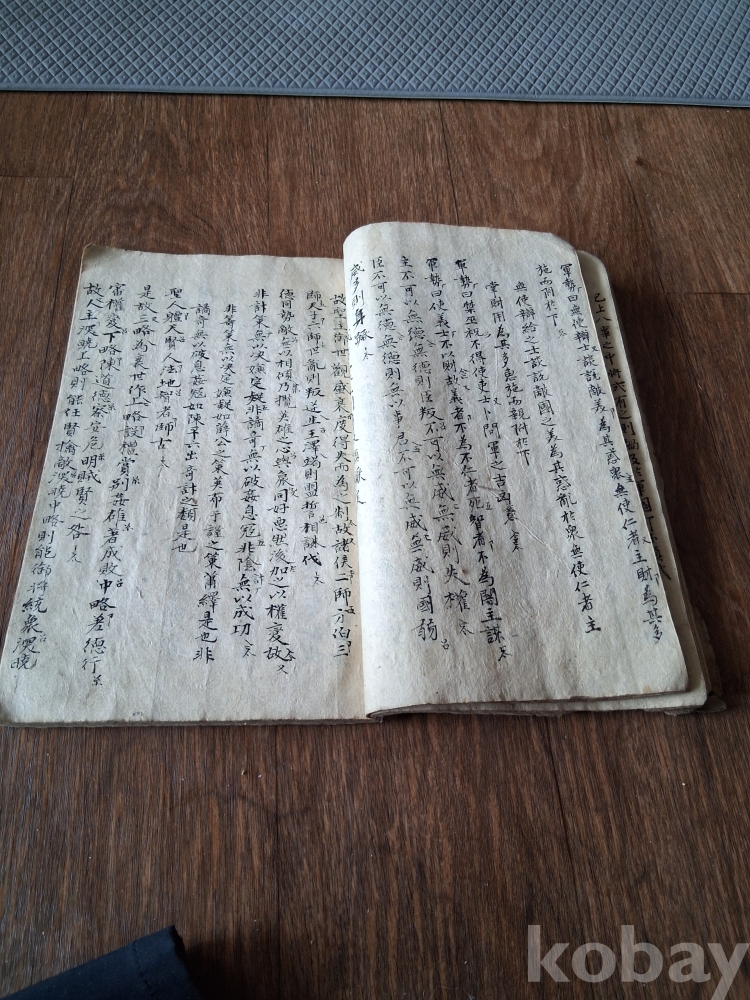 已上八事之中將
軍勢曰無使辯士談說敵義為其惑衆無使仁者主財為其多
施而附於下
無使辯給之士談說敵國之美為其惑亂於衆無使仁者主
掌財用為其多惠施而親附於下
軍勢曰禁巫祝不得使吏士卜問軍之吉凶
軍勢曰使義士不以財故義者不為不仁者死智者不為闇主謀
主不可以無德無德則臣叛不可以無威無威則失權
臣不可以無德無德則無以事君不可以無威無威則國弱
威多則身蹶
故聖王御世觀盛衰度得失而為之制故諸侯二師方伯三
師天子六師世亂則叛逆生王澤竭則盟誓相誅伐
德同勢敵無以相傾乃攬英雄之心與衆同好惡然後加之以權變故
非計策無以決嫌定疑非譎奇無以破姦息寇非陰計無以成功
非奇策無以決定嫌疑如薛公之策英布于謹之策蕭繹是也非
譎奇無以破姦息寇如陳平六出奇計之類是也
聖人體天賢人法地智者師古
是故三略為衰世作上略設禮賞別姦雄著成敗中略差德行
審權變下略陳道德察安危明賊賢之咎
故人主深曉上略則能任賢擒敵深曉中略則能御將統衆深曉
kobay